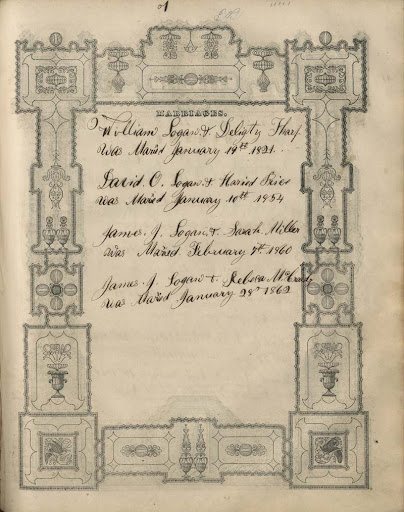 MARRIAGES.
William Logan & Delighty Tharp
Was Maried January 14th 1821.
David O. Logan & Hariet Price
was Maried January 10th 1854
James J. Logan & Sarah Miller
Was Maried February 7th 1860
James J. Logan & Rebeca McCrady
was Maried January 28th 1862